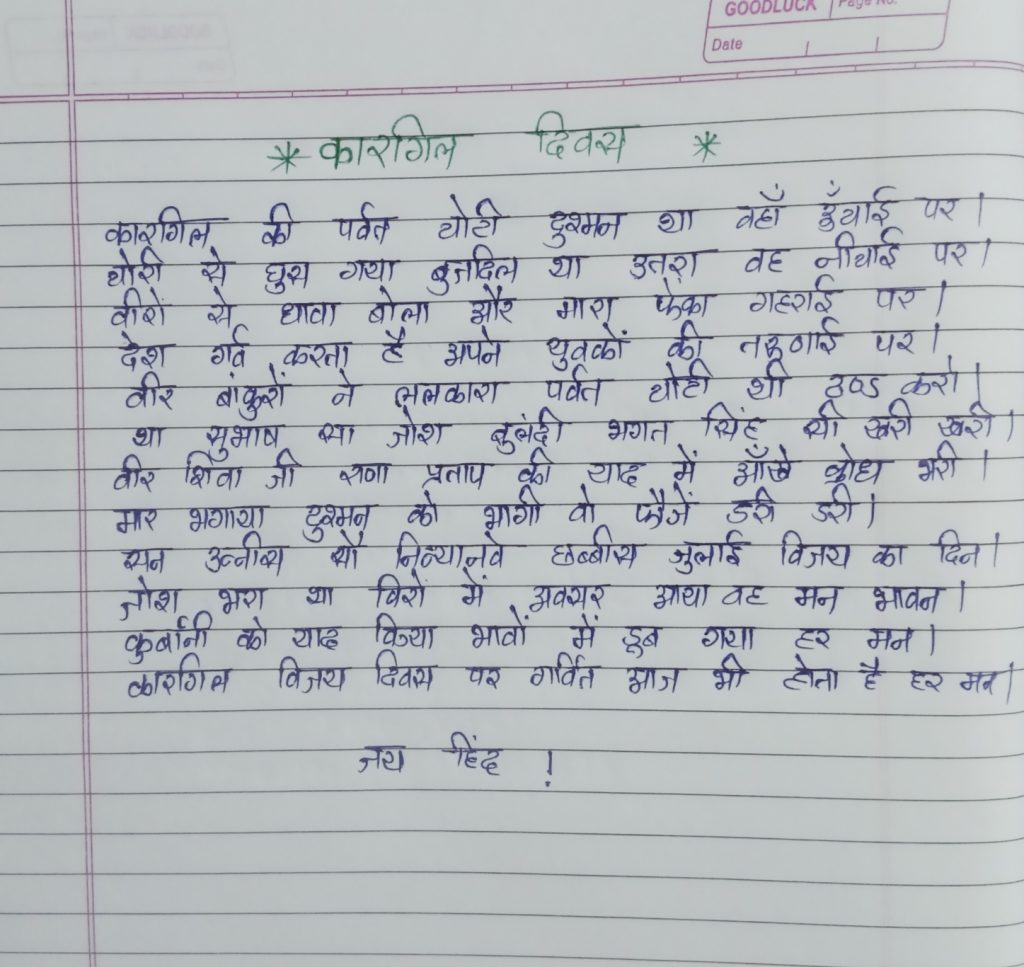 GOODLUCK Page No.
Date
* कारगिल दिवस *
कारगिल की पर्वत चोटी दुश्मन था वहाँ ऊँचाई पर।
चोरी से घुस गया बुजदिल था उतरा वह नीचाई पर।
वीरों से धावा बोला और मारा फेंका गहराई पर।
देश गर्व करता है अपने युवकों की तरुणाई पर।
वीर बांकुरों ने ललकारा पर्वत चोटी थी ठण्ड करी।
था सुभाष सा जोश बुलंदी भगत सिंह सी खरी खरी।
वीर शिवा जी राणा प्रताप की याद में आँखे क्रोध भरी।
मार भगाया दुश्मन को भागी वो फौजें डरी डरी।
सन उन्नीस सौ निन्यानवे छब्बीस जुलाई विजय का दिन।
जोश भरा था विरों में अवसर आया वह मन भावन।
कुर्बानी को याद किया भावों में डूब गया हर मन।
कारगिल विजय दिवस पर गर्वित आज भी होता है हर मन।
जय हिंद !